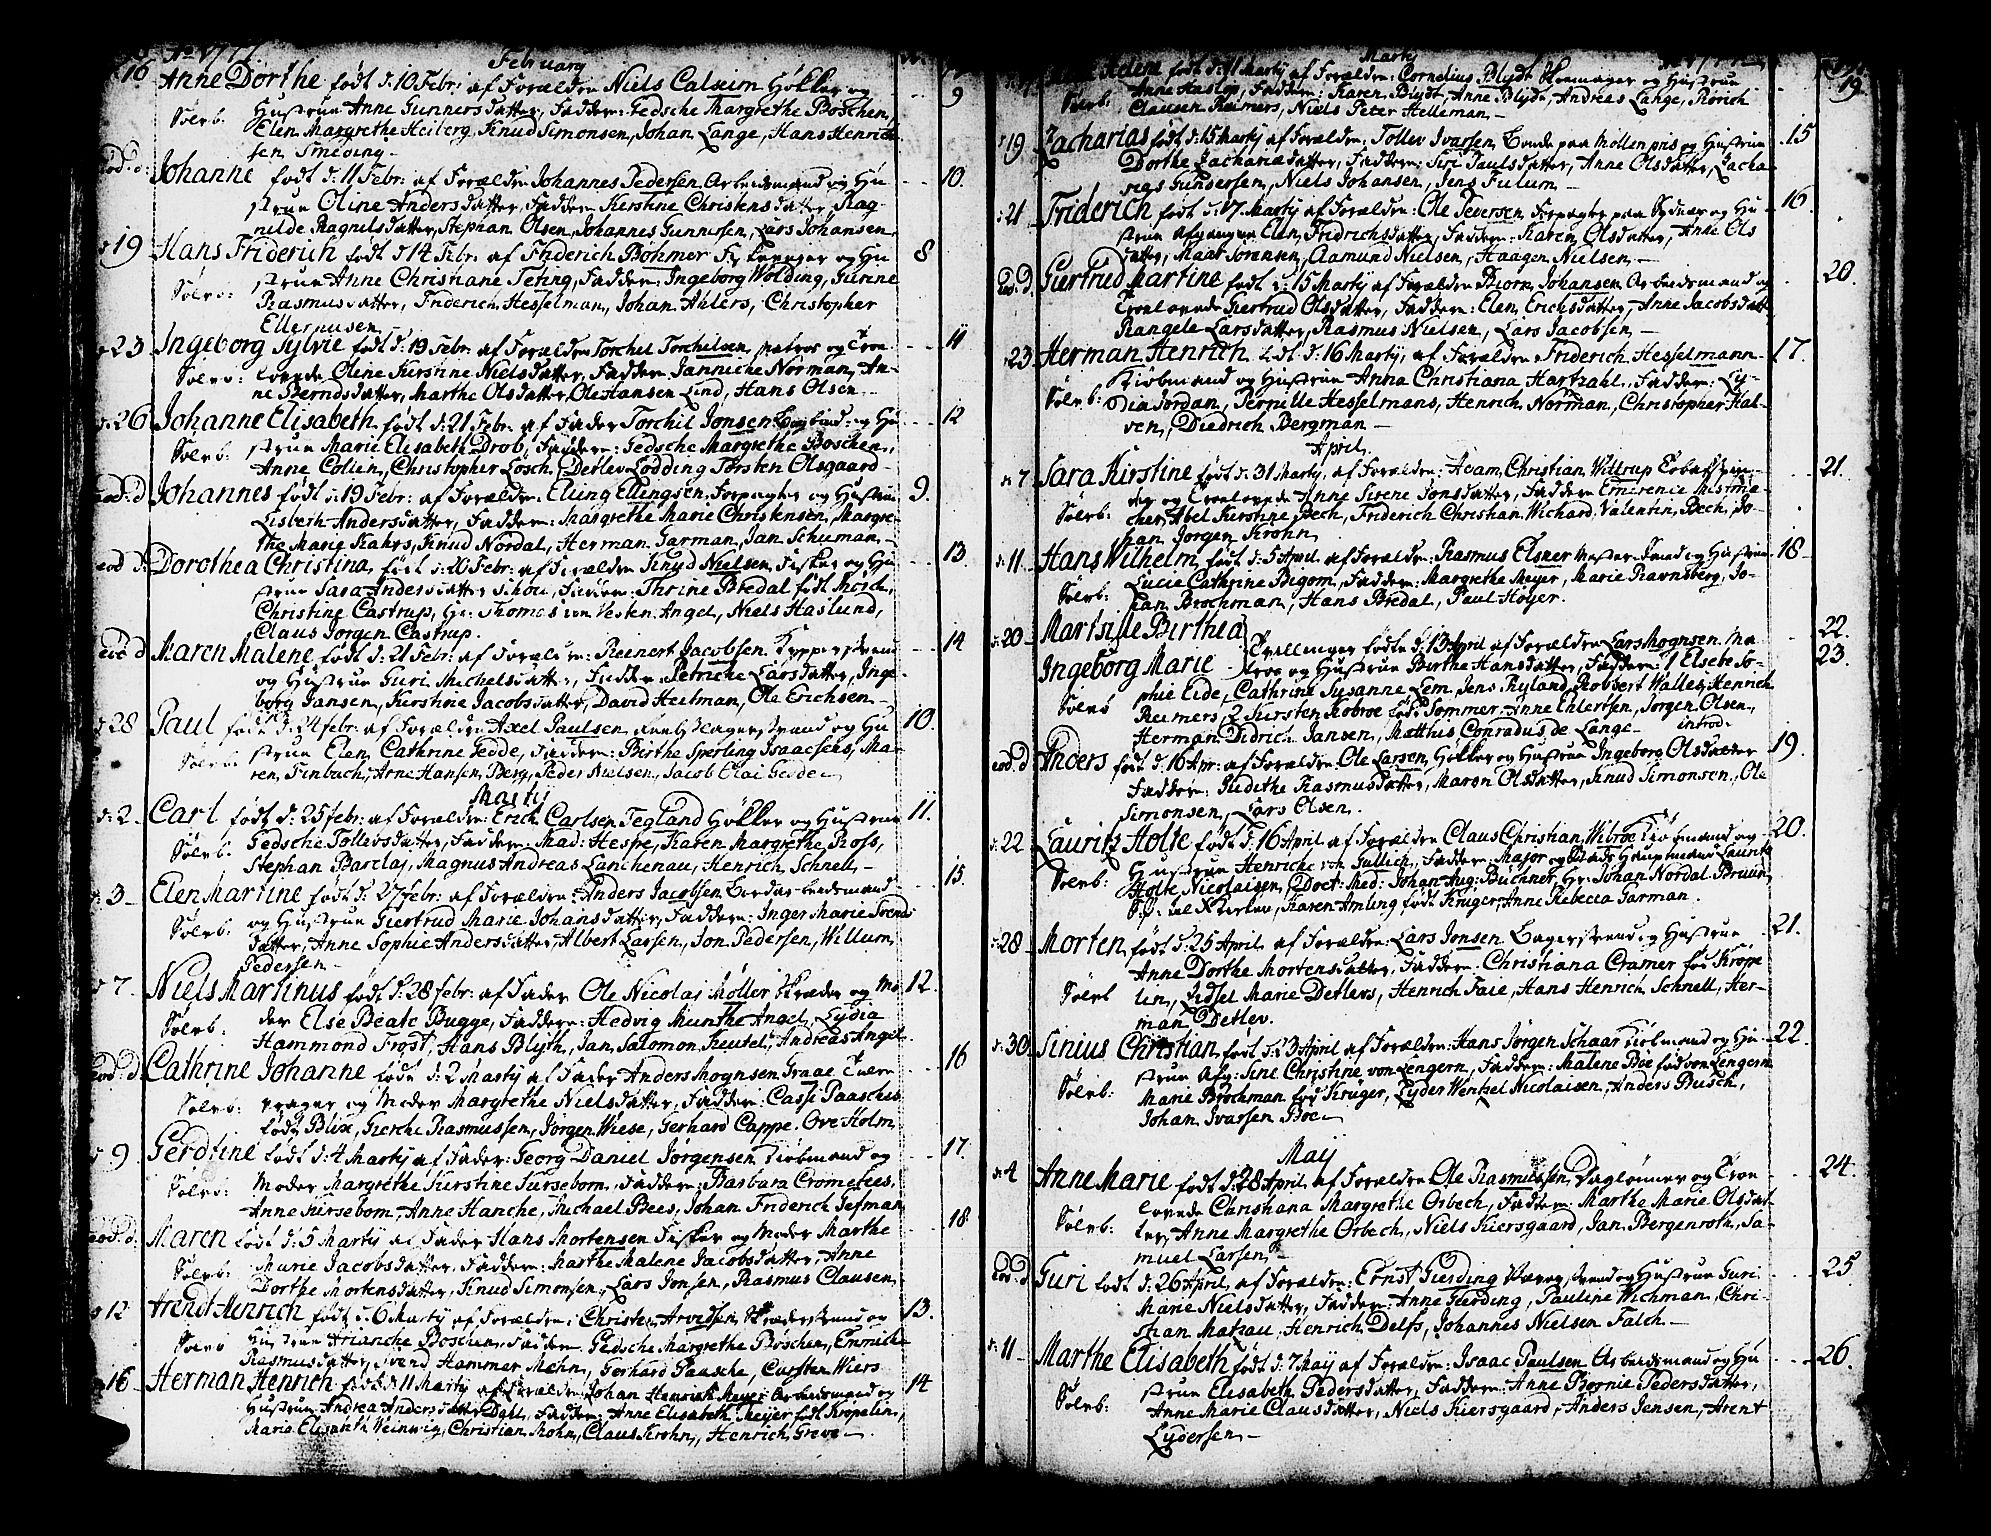 Ao 1777. February
16 Anne Dorthe født d: 10 Febr: af Forældre Niels Calseim Høkker og 9
Sølvb. Hustrue Anne Gunnersdatter, Faddere: Gedsche Margrethe Boschen,
Elen Margrethe Heiberg, Knud Simonsen, Johan Lange, Hans Henrich
sen Smeding.
eod: d: Johanne født d: 11 Febr: af Forældre Johannes Pedersen Arbeidsmand og Hu 10.
strue Oline Andersdatter, Faddere: Kirstine Christensdatter, Rag
nilde Ragnilsdatter, Stephan Olsen, Johannes Gunnersen, Lars Johansen.
d: 19 Hans Friderich født d: 14 Febr: af Friderich Bøhmer og Hu 8
Sølvb: strue Anne Christiane Teting, Faddere: Ingeborg Wolding, Gunine
Rasmusdatter, Friderich Hesselman, Johan Ahlers, Christopher
Ellernusen
d: 23 Ingeborg Sylvie født d: 19 Febr: af Forældre Torchel Torchelsen, Matros og Troe 11
Sølvb: lovede Oline Kirstine Nielsdatter, Faddere: Janniche Norman, An
ne Berndsdatter, Marthe Olsdatter, Ole Hansen Lind, Hans Olsen
d: 26 Johanne Elisabeth født d: 21 Febr: af Fader Torchil Jonsen og Hu 12
Sølvb: strue Marie Elisabeth Drob, Faddere: Gedsche Margrethe Boschen,
Anne Collen, Christopher Losch, Detlev Lodding, Torsten Olsgaard
eod: d Johannes født d: 19 Febr: af Forældre: Elling Ellingsen, Forpagter og Hustrue 9.
Lisbeth Andersdatter, Faddere: Margrethe Marie Christensen, Margre
the Marie Kahrs, Knud Nordal, Herman Garman, Jan Schuman
eod d: Dorothea Christina, født d: 20 Febr: af Forældre Knyd Nielsen, Fisker og Hu 13.
strue Sara Andersdatter Schou, Faddere: Thrine Bredal født Thorch,
Christine Castrup, Hr: Thomas von Westen Angel, Niels Haslund,
Claus Jørgen Castrup.
eod d Maren Malene født d: 21 Febr: af Forældre: Reinert Jacobsen 14
og Hustrue Guri Michelsdatter, Faddere: Petriche Larsdatter, Inge
borg Jansen, Kirstine Jacobsdatter, David Heitman, Ole Erichsen
d: 28 Paul født d: 24 febr: af Forældre Axel Paulsen og Hu 10.
Sølvb: strue Elen Cathrine Gedde, Faddere: Birthe Sperling Isaachsens, Ma
ren Finbuch, Arne Hansen Berg, Peder Nielsen, Jacob Elai Gedde
Martij
d: 2 Carl født d: 25 febr: af Forældre: Erich Carlsen Tegland Høkker og Hustrue 11.
Sølvb. Gedsche Tollevsdatter, Faddere: Mad: Hespe, Karen Margrethe Ross,
Stephan Barclaj, Magnus Andreas Lanchenau, Henrich Schnell
d: 3 Elen Martine født d: 27 febr: af Forældre: Anders Jacobsen 15.
Sølvb: og Hustrue Giertrud Marie Johansdatter, Faddere: Inger Marie Svends
datter, Anne Sophie Andersdatter, Albert Lassen, Jon Pedersen, Willum
Pedersen
d 7. Niels Martinus født d: 28 febr: af Fader Ole Nicolaj Møller Skræder og Mo 12.
Sølvb: der Else Beate Bugge, Faddere: Hedvig Munthe Angel, Lydia
Hammond Frost, Hans Blyth, Jan Salomon Keutel, Andreas Angel
eod: d Cathrine Johanne født d: 2 Martij af Fader Anders Mognsen Graae 16
Sølvb: Drager og Moder Margrethe Nielsdatter, Faddere: Cassi Paasches
født Blix, Gierche Rasmussen, Jørgen Wiese, Gerhard Cappe, Ove Holm
d 9. Gerdtine født d: 4 Martij af Fader: Georg Daniel Jørgensen Kiøbmand og 17.
Sølvb: Moder Margrethe Kirstine Kirseborn, Faddere: Barbara Cromelies,
Anne Kirseborn, Anne Hanche, Michael Bees, Johan Friderich Gesman
eod: d: Maren født d: 5 Martij af Fader Hans Mortensen Fisker og Moder Marthe 18
Sølvb: Marie Jacobsdatter, Faddere: Marthe Malene Jacobsdatter, Anne
Dorthe Mortensdatter, Knud Simonsen, Lars Jonsen, Rasmus Clausen,
d 12 Arendt Henrich født d: 6 Martij af Forældre: Christen Arvedsen Skræder og 13.
Sølvb Hustrue Arianche Boschen, Faddere: Gedsche Margrethe Boschen, Emmiche
Rasmusdatter, Svend Hammer Mehn, Gerhard Paasche, Carsten Wiers
d 16 Herman Henrich født d: 11 Martij af Forældre: Johan Henrich Meyer Arbeidsmand og 14
Hustrue Andrea Andersdatter Dahl, Faddere: Anne Elisabeth Meyer født Kropelin,
Marie Elisabeth Weinwig, Christian Mohn, Claus Krohn, Henrich Greve
Martij Ao 1777
19.
Helene født d: 11 Martij af Forældre: Cornelius Blydt Skomager og Hustrue
Sølvb. Anne Haslop, Faddere: Karen Blydt, Anne Blydt, Andreas Lange, Rørich
Clausen Reimers, Niels Peter Helleman
d: 19 Zacharias født d: 15 Martij af Forældre: Tollev Ivarsen Bonde paa Møllenpris og Hustrue 15
Dorthe Zachariadatter, Faddere: Siri Paulsdatter, Anne Olsdatter, Zacha
rias Gundersen, Niels Johansen, Jens Fulum
d: 21 Friderich født d: 17 Martij af Forældre: Ole Seversen Forpagter paa Sydnæs og Hu 16.
strue Elen Fridrichsdatter, Faddere: Karen Olsdatter, Anne Ols
datter, Maat Sørensen, Aamund Nielsen, Haagen Nielsen
Eod: d. Giertrud Martine født d: 15 Martij af Forældre Biorn Johansen Arbeidsmand og 20.
Troelovede Giertrud Olsdatter, Faddere: Elen Erichsdatter, Anne Jacobsdatt
Rangele Larsdatter, Rasmus Nielsen, Lars Jacobsen
d: 23 Herman Henrich født d: 16 Martij, af Forældre Friderich Hesselmann 17.
Sølvb: Kiøbmand og Hustrue Anna Christiana Hartzahl, Faddere: Ly
dia Jordan, Pernille Hesselmans, Henrich Norman, Christopher Hal
ven, Diedrich Bergman
April.
d: 7 Sara Kirstine født d: 31 Martij, af Forældre: Adam Christian Wiltrup 21.
Sølvb: og Troelovede Anne Sirene Jonsdatter, Faddere Emerence Mistma
cher, Abel Kirstine Bech, Friderich Christian Wichard Valentin Bech, Jo
han Jørgen Krohn
d: 11 Hans Wilhelm født d: 5 April af Forældre: Rasmus Elsner og Hustrue 18
Sølvb. Lucie Cathrine Bigom, Faddere: Margrethe Meyer, Marie Ravnsberg, Jo
han Brochman, Hans Bredal, Paul Høyer.
d: 20 Martsille Birthea 22.
Ingeborg Marie Tvillinger fødte d: 13 April af Forældre Lars Mognsen Ma 23.
tros og Hustrue Birthe Hansdatter, Faddere: 1 Elsebe So
Sølvb phie Eide, Cathrine Susanne Lem, Jens Ryland, Robbert Walles, Henrich
Reimers, 2 Kirsten Kobroe født Sommer, Anne Ehlertsen, Jørgen Olsen,
Herman Didrich Jansen, Matthis Conradus de Lange. introd.
eod: d Anders født d: 16 Apr: af Forældre Ole Larsen, Høkker og Hustrue Ingeborg Olsdatter 19
Faddere: Judithe Rasmusdatter, Maren Olsdatter, Knud Simonsen, Ole
Simonsen, Lars Olsen.
d: 22 Lauritz Holte født d: 16 April af Forældre Claus Christian Wibroe Kiøbmand og 20.
Sølvb: Hustrue Henriche von Gullich, Faddere: Major og Stads Hauptmand Lauritz
Holte Nicolaisen, Doct: Med: Johan Aug: Büchner, Hr: Johan Nordal Bruun,
Karen Amling født Krüger, Anne Rebecca Garman.
d: 28 Morten født d: 25 April af Forældre: Lars Jonsen og Hustrue 21.
Anne Dorthe Mortensdatter, Faddere: Christiana Cramer født Krøpe
Sølvb lin, Zidsel Marie Detlevs, Henrich Faie, Hans Henrich Schnell, Her
man Detlev.
d: 30 Sinius Christian født d: 23 April af Forældre: Hans Jørgen Schaar Kiøbmand og Hu 22.
Sølvb: strue Afg: Sine Christine von Lengern, Faddere: Malene Bøe fød von Lengern
Marie Brochman fød Krüger, Lyder Wentzel Nicolaisen, Anders Busch,
Johan Ivarsen Boe
Maij
d: 4 Anne Marie født d: 28 April af Forældre Ole Rasmussen Daglønner og Troe 24.
Sølvb: lovede Christiana Margrethe Orbech, Faddere: Marthe Marie Olsdat
ter, Anne Margrethe Orbech, Niels Kiersgaard, Jan Bergenroth, Sa
muel Larsen
Eod: d. Guri født d: 26 April af Forældre: Ernst Gierding og Hustrue Guri 25
Marie Nielsdatter, Faddere: Anne Gierding, Pauline Wichman, Chri
stian Matzau, Henrich Delfs, Johannes Nielsen Falch
d: 11 Marthe Elisabeth født d: 7 Maij af Forældre: Isaac Paulsen Arbeidsmand og Hu 26.
Sølvb: strue Elisabeth Pedersdatter, Faddere: Anne Bornie Pedersdatter,
Anne Marie Clausdatter, Niels Kiersgaard, Anders Jensen, Arent
Lydersen